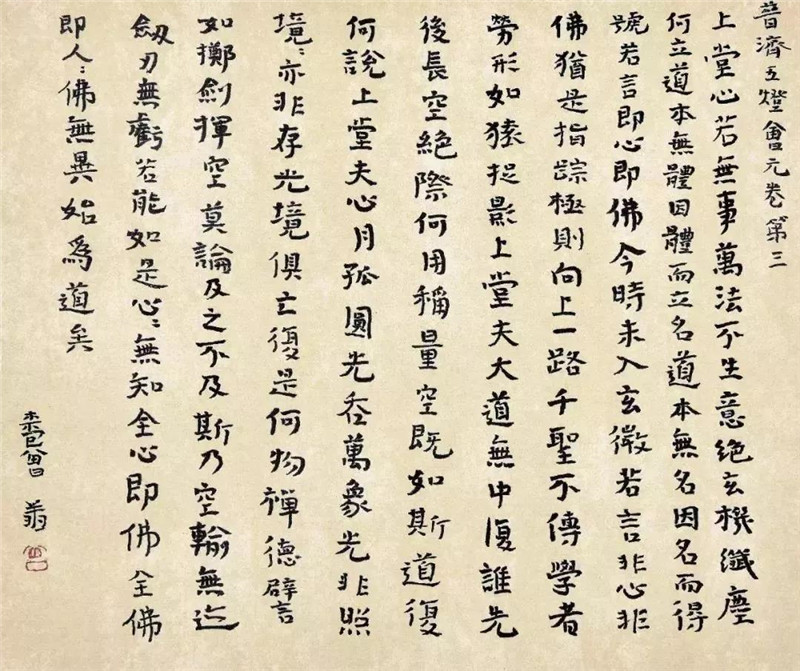 普濟五燈會元卷第三
上堂心若無事萬法不生意絕玄機纖塵
何立道本無體因體而立名道本無名因名而得
號若言即心即佛今時未入玄微若言非心非
佛猶是指踪極則向上一路千聖不傳學者
勞形如猿捉影上堂夫大道無中復誰先
後長空絕際何用稱量空既如斯道復
何說上堂夫心月孤圓光吞萬象光非照
境〻亦非存光境俱亡復是何物禪德譬
如擲劍揮空莫論及之不及斯乃空輪無迹
劔刃無虧若能如是心〻無知全心即佛全佛
即人〻佛無異始為道矣
曾翁